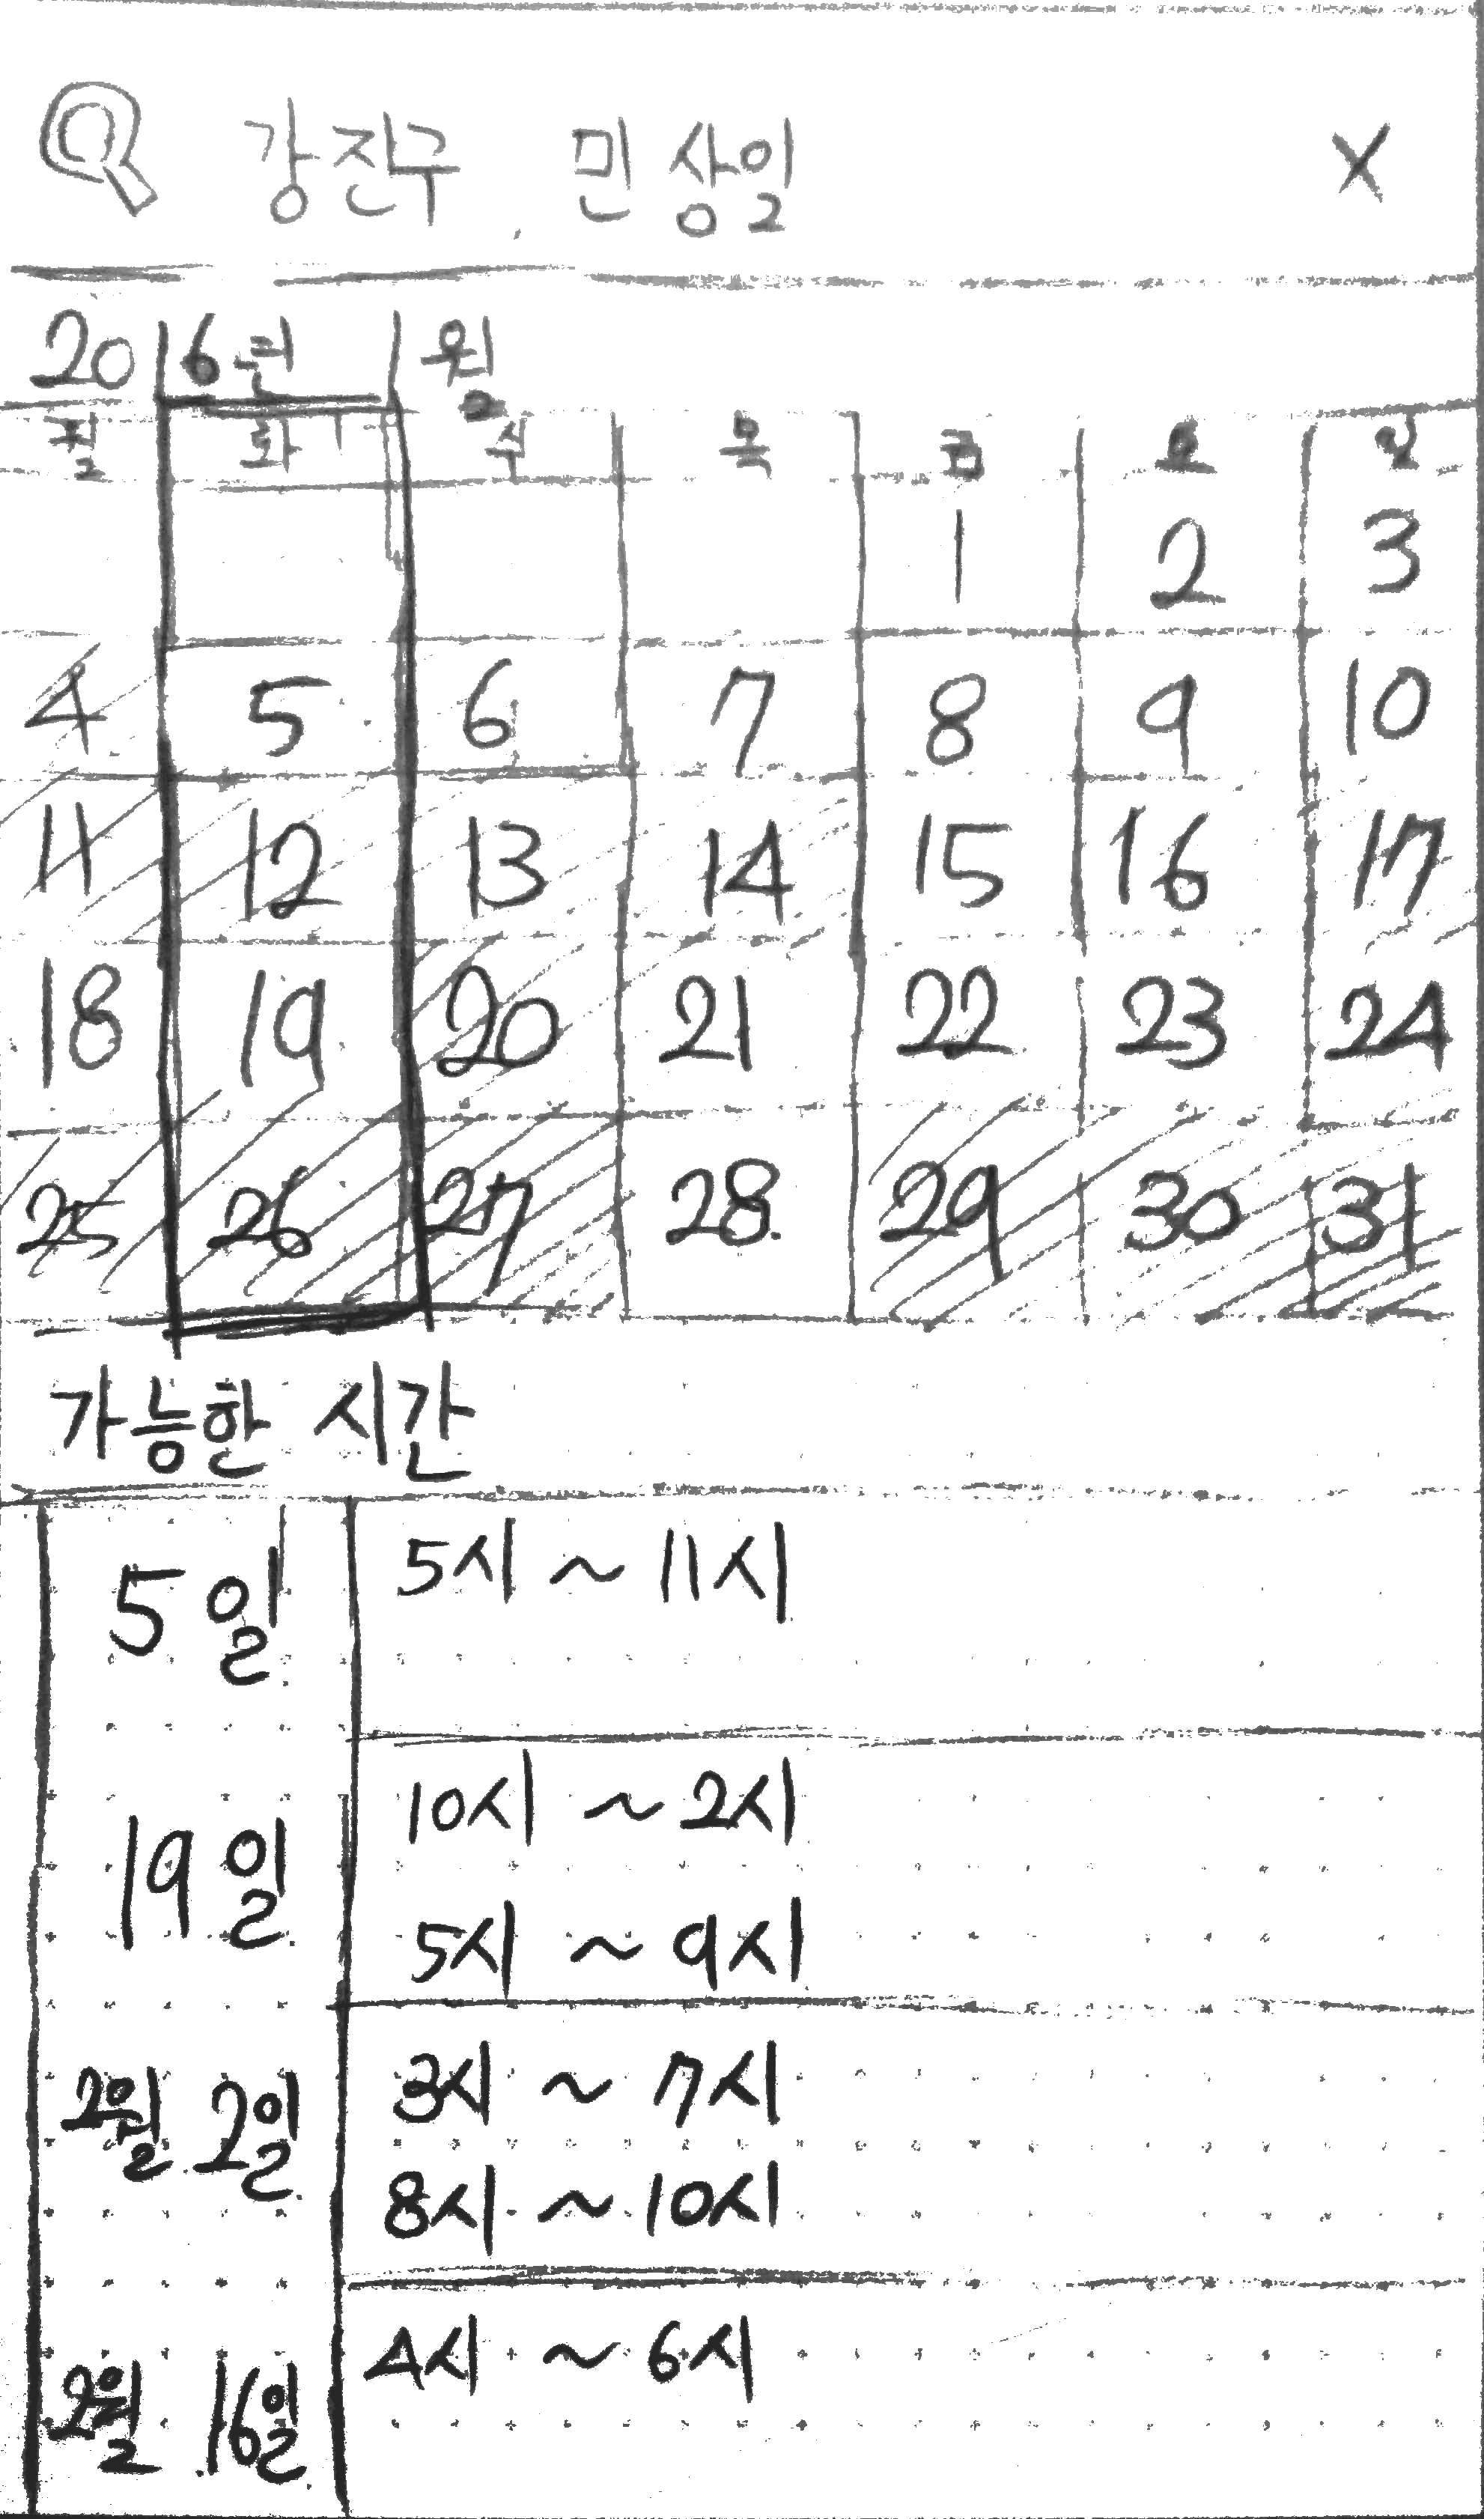 강진구, 민상일 X
2016년 1월
월 화 수 목 금 토 일
1 2 3
4 5 6 7 8 9 10
11 12 13 14 15 16 17
18 19 20 21 22 23 24
25 26 27 28 29 30 31
가능한 시간
5일 5시 ~ 11시
19일 10시 ~ 2시
5시 ~ 9시
2월 2일 3시 ~ 7시
8시 ~ 10시
2월 16일 4시 ~ 6시